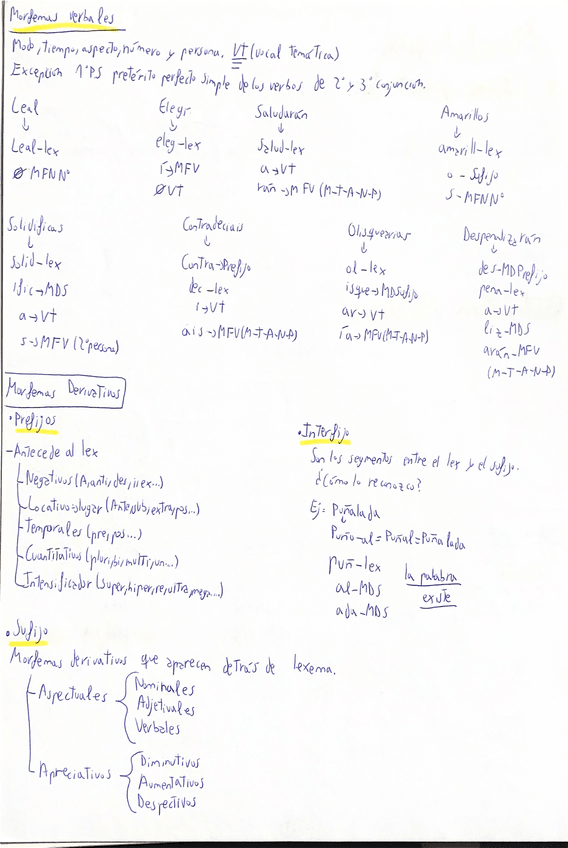 Morfemas verbales
Modo, tiempo, aspecto, número y persona. VT (vocal temática)
Excepción 1ºPS pretérito perfecto simple de los verbos de 2ª y 3ª conjunción.
Leal
↓
Leal-lex
Ø MFNNº
Elegí
↓
eleg-lex
í→MFV
Ø VT
Saludarán
↓
salud-lex
a→VT
rán→MFV (M-T-A-N-P)
Amarillos
↓
amarill-lex
o-Sufijo
s-MFNNº
Solidificas
↓
solid-lex
ific→MDS
a→Vt
s→MFV (2ª persona)
Contradeciais
↓
Contra→Prefijo
dec-lex
i→VT
ais→MFV(M-T-A-N-P)
Olisquearias
↓
ol-lex
isque→MDSufijo
ar→VT
ía→MFV(M-T-A-N-P)
Despenalizarán
↓
des-MDPrefijo
pena-lex
a→VT
liz-MDS
arán-MFV
(M-T-A-N-P)
Morfemas Derivativos
•Prefijos
-Antecede al lex
Negativos (A, anti, des, i, ex...)
Locativos→lugar (Ante, sub, extra, pos...)
Temporales (pre, pos...)
Cuantitativos (pluri, bi, multi, un...)
Intensificador (super, hiper, re, ultra, mega...)
•Interfijo
Son los segmentos entre el lex y el sufijo.
¿Cómo lo reconozco?
Ej: Puñalada
↓
Puño-al=Puñal=Puñalada
puñ-lex
al-MDS
ada-MDS
la palabra
existe
•Sufijo
Morfemas derivativos que aparecen detrás de lexema.
Aspectuales
Nominales
Adjetivales
Verbales
Apreciativos
Diminutivos
Aumentativos
Despectivos